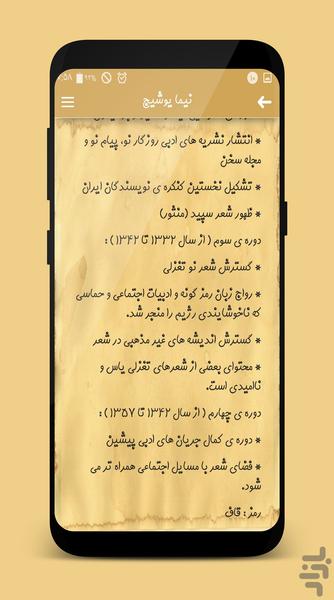 ۷:۵۸ ۹۲% ۱۰
نیما یوشیج
* انتشار نشریه های ادبی روزگار نو، پیام نو و
مجله سخن
* تشکیل نخستین کنگره ی نویسندگان ایران
* ظهور شعر سپید (منثور)
دوره ی سوم ( از سال ۱۳۳۲ تا ۱۳۴۲ ) :
* گسترش شعر نو تغزلی
* رواج زبان رمز گونه و ادبیات اجتماعی و حماسی
که ناخوشایندی رژیم را منجر شد.
* گسترش اندیشه های غیر مذهبی در شعر
* محتوای بعضی از شعرهای تغزلی یاس و
ناامیدی است.
دوره ی چهارم ( از سال ۱۳۴۲ تا ۱۳۵۷ ) :
* دوره ی کمال جریان های ادبی پیشین
* فضای شعر با مسایل اجتماعی همراه تر می
شود.
رمز : قاف